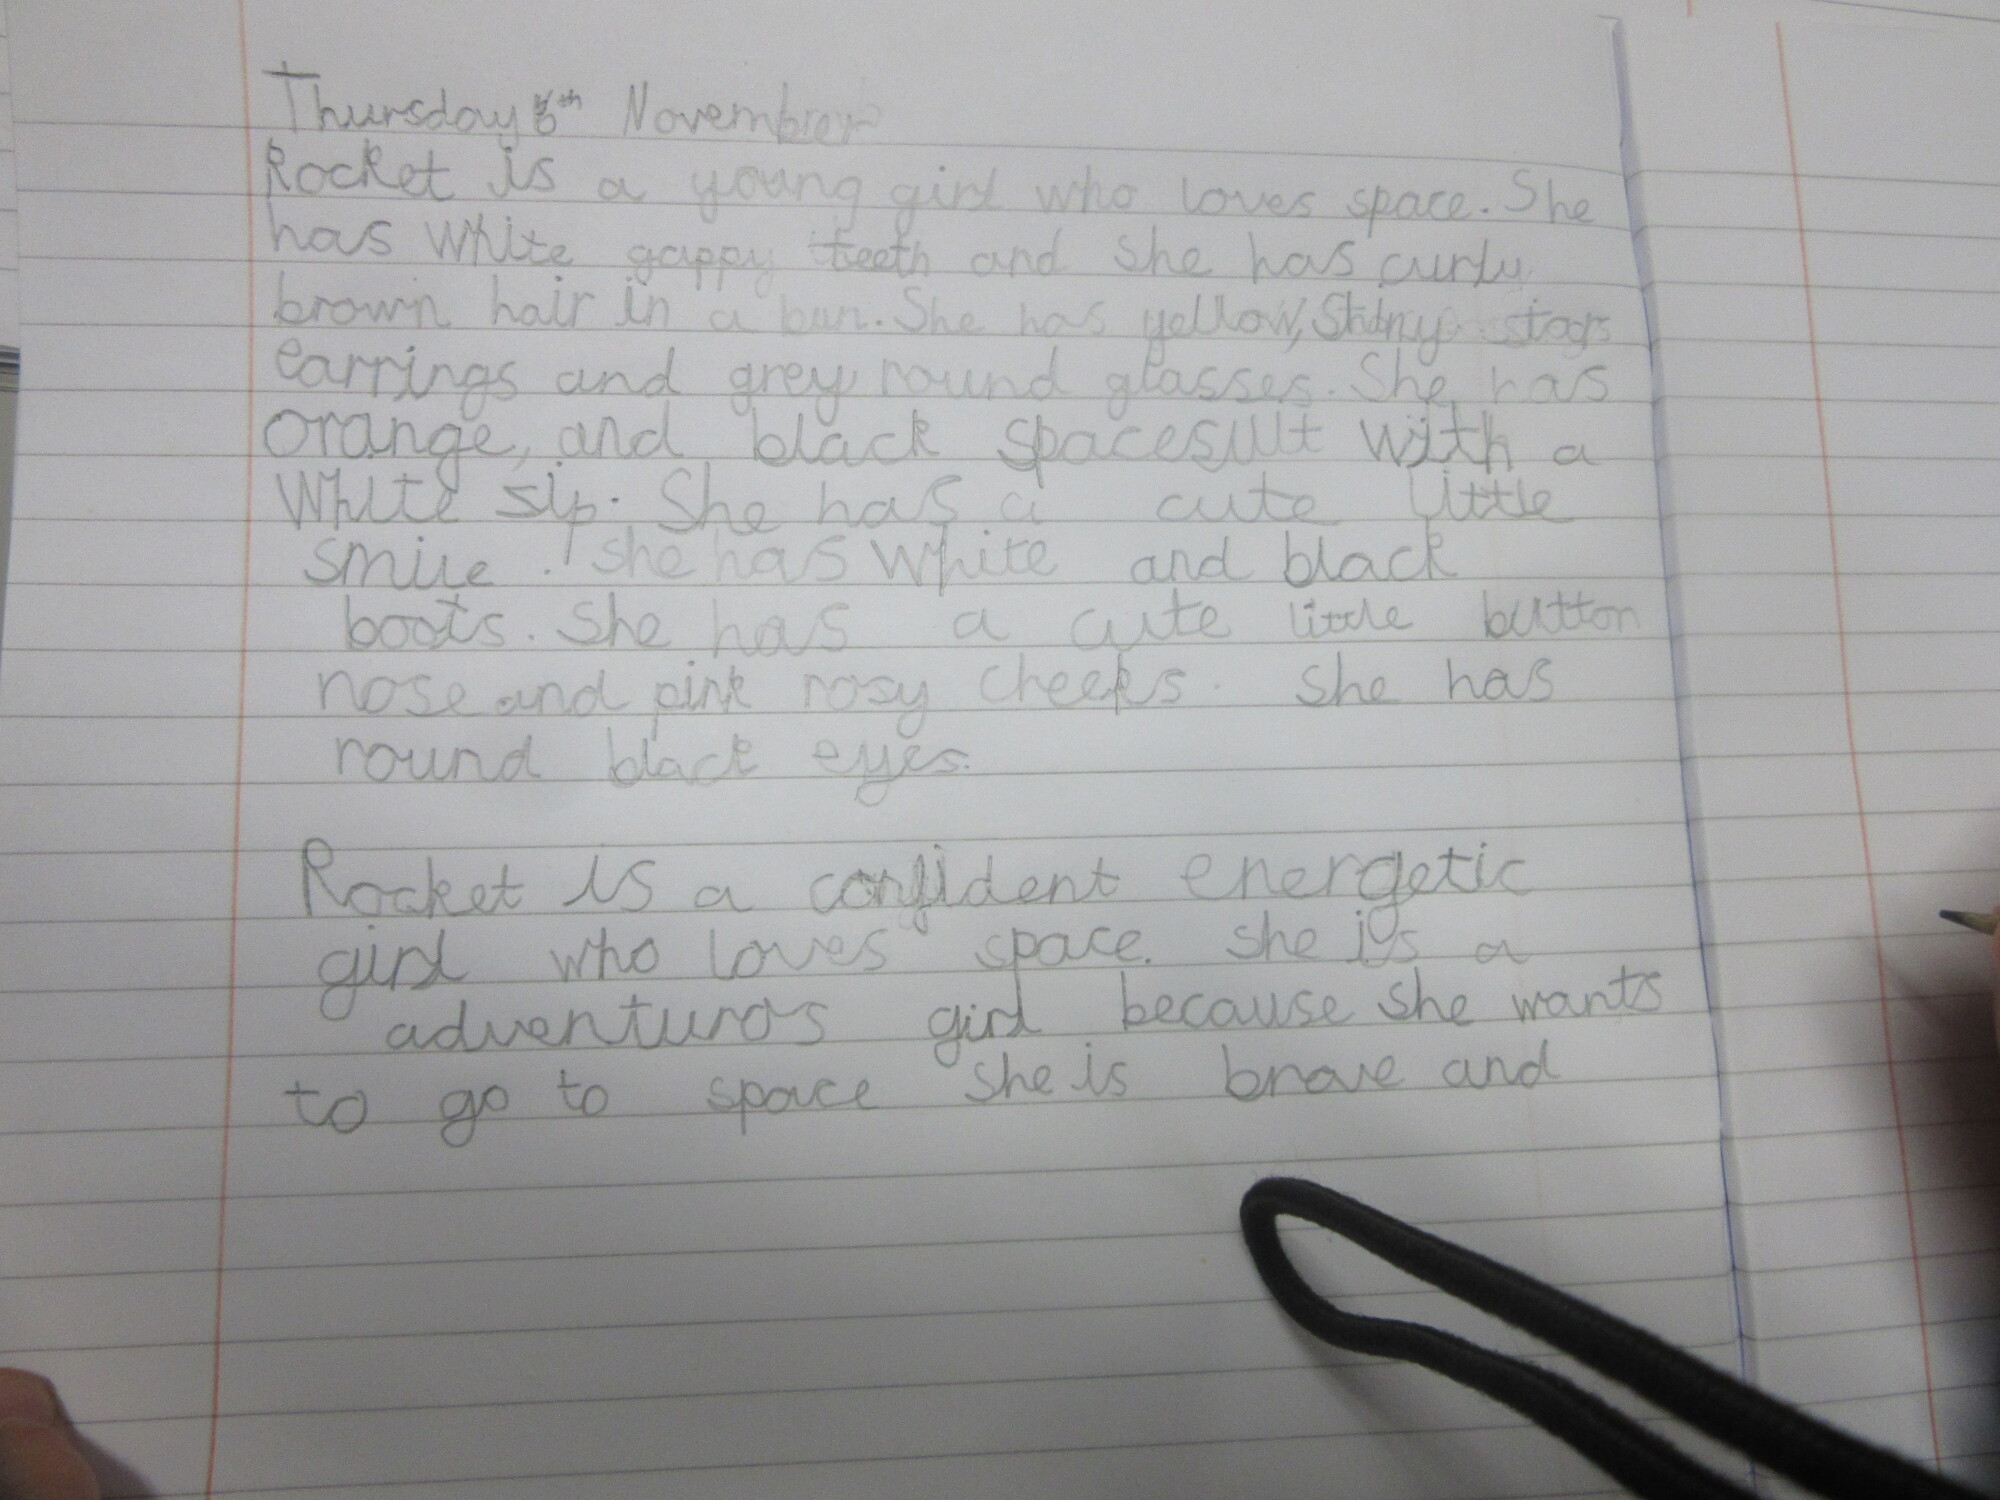 Thursday 6th November
Rocket is a young girl who loves space. She
has white gappy teeth and she has curly
brown hair in a bun. She has yellow, Shiny stars
earrings and grey round glasses. She has
orange, and black spacesuit with a
White sip. She has a cute little
smile. she has white and black
boots. She has a cute little button
nose and pink rosy cheeks. She has
round black eyes.
Rocket is a confident energetic
girl who loves space. she is a
adventuros girl because she wants
to go to space she is brave and